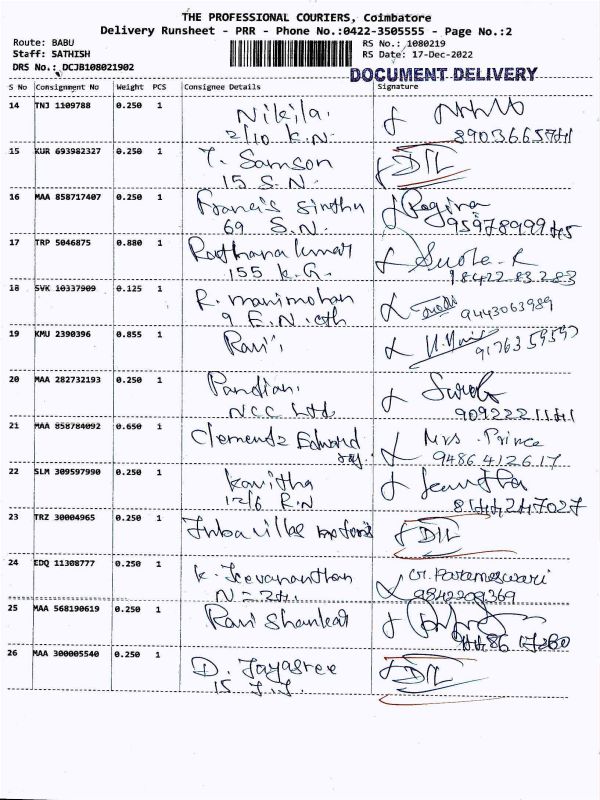 THE PROFESSIONAL COURIERS, Coimbatore
Delivery Runsheet - PRR - Phone No.:0422-3505555 - Page No.:2
Route: BABU
RS No.: 1080219
Staff: SATHISH
RS Date: 17-Dec-2022
DRS No.: DCJB108021902
DOCUMENT DELIVERY
S No Consignment No Weight PCS Consignee Details Signature
14 TNJ 1109788 0.250 1 Nikila.
2/10 K.N.
15 KUR 693982327 0.250 1 T. Samson DIL
15 S.N.
16 MAA 858717407 0.250 1 Francis Sindhu Regina
69 S.N. 9597899945
17 TRP 5046875 0.880 1
155 K.G. 18422 83 283
18 SVK 10337909 0.125 1 R. manimohan
9 E.N. 9443063989
19 KMU 2390396 0.855 1 Ravi
20 MAA 282732193 0.250 1 Pandian.
NCC Ltd
21 MAA 858784092 0.650 1 Clementz Edward Mrs. Prince
9486412617
22 SLM 309597990 0.250 1 Kavitha
12/6 R.N 8444247027
23 TRZ 30004965 0.250 1 DIL
24 EDQ 11308777 0.250 1 K. Jeevananthan Parameswari
9842209369
25 MAA 568190619 0.250 1 Ravi Shankar
26 MAA 300005540 0.250 1 D. Jayasree DIL
15 J.J.